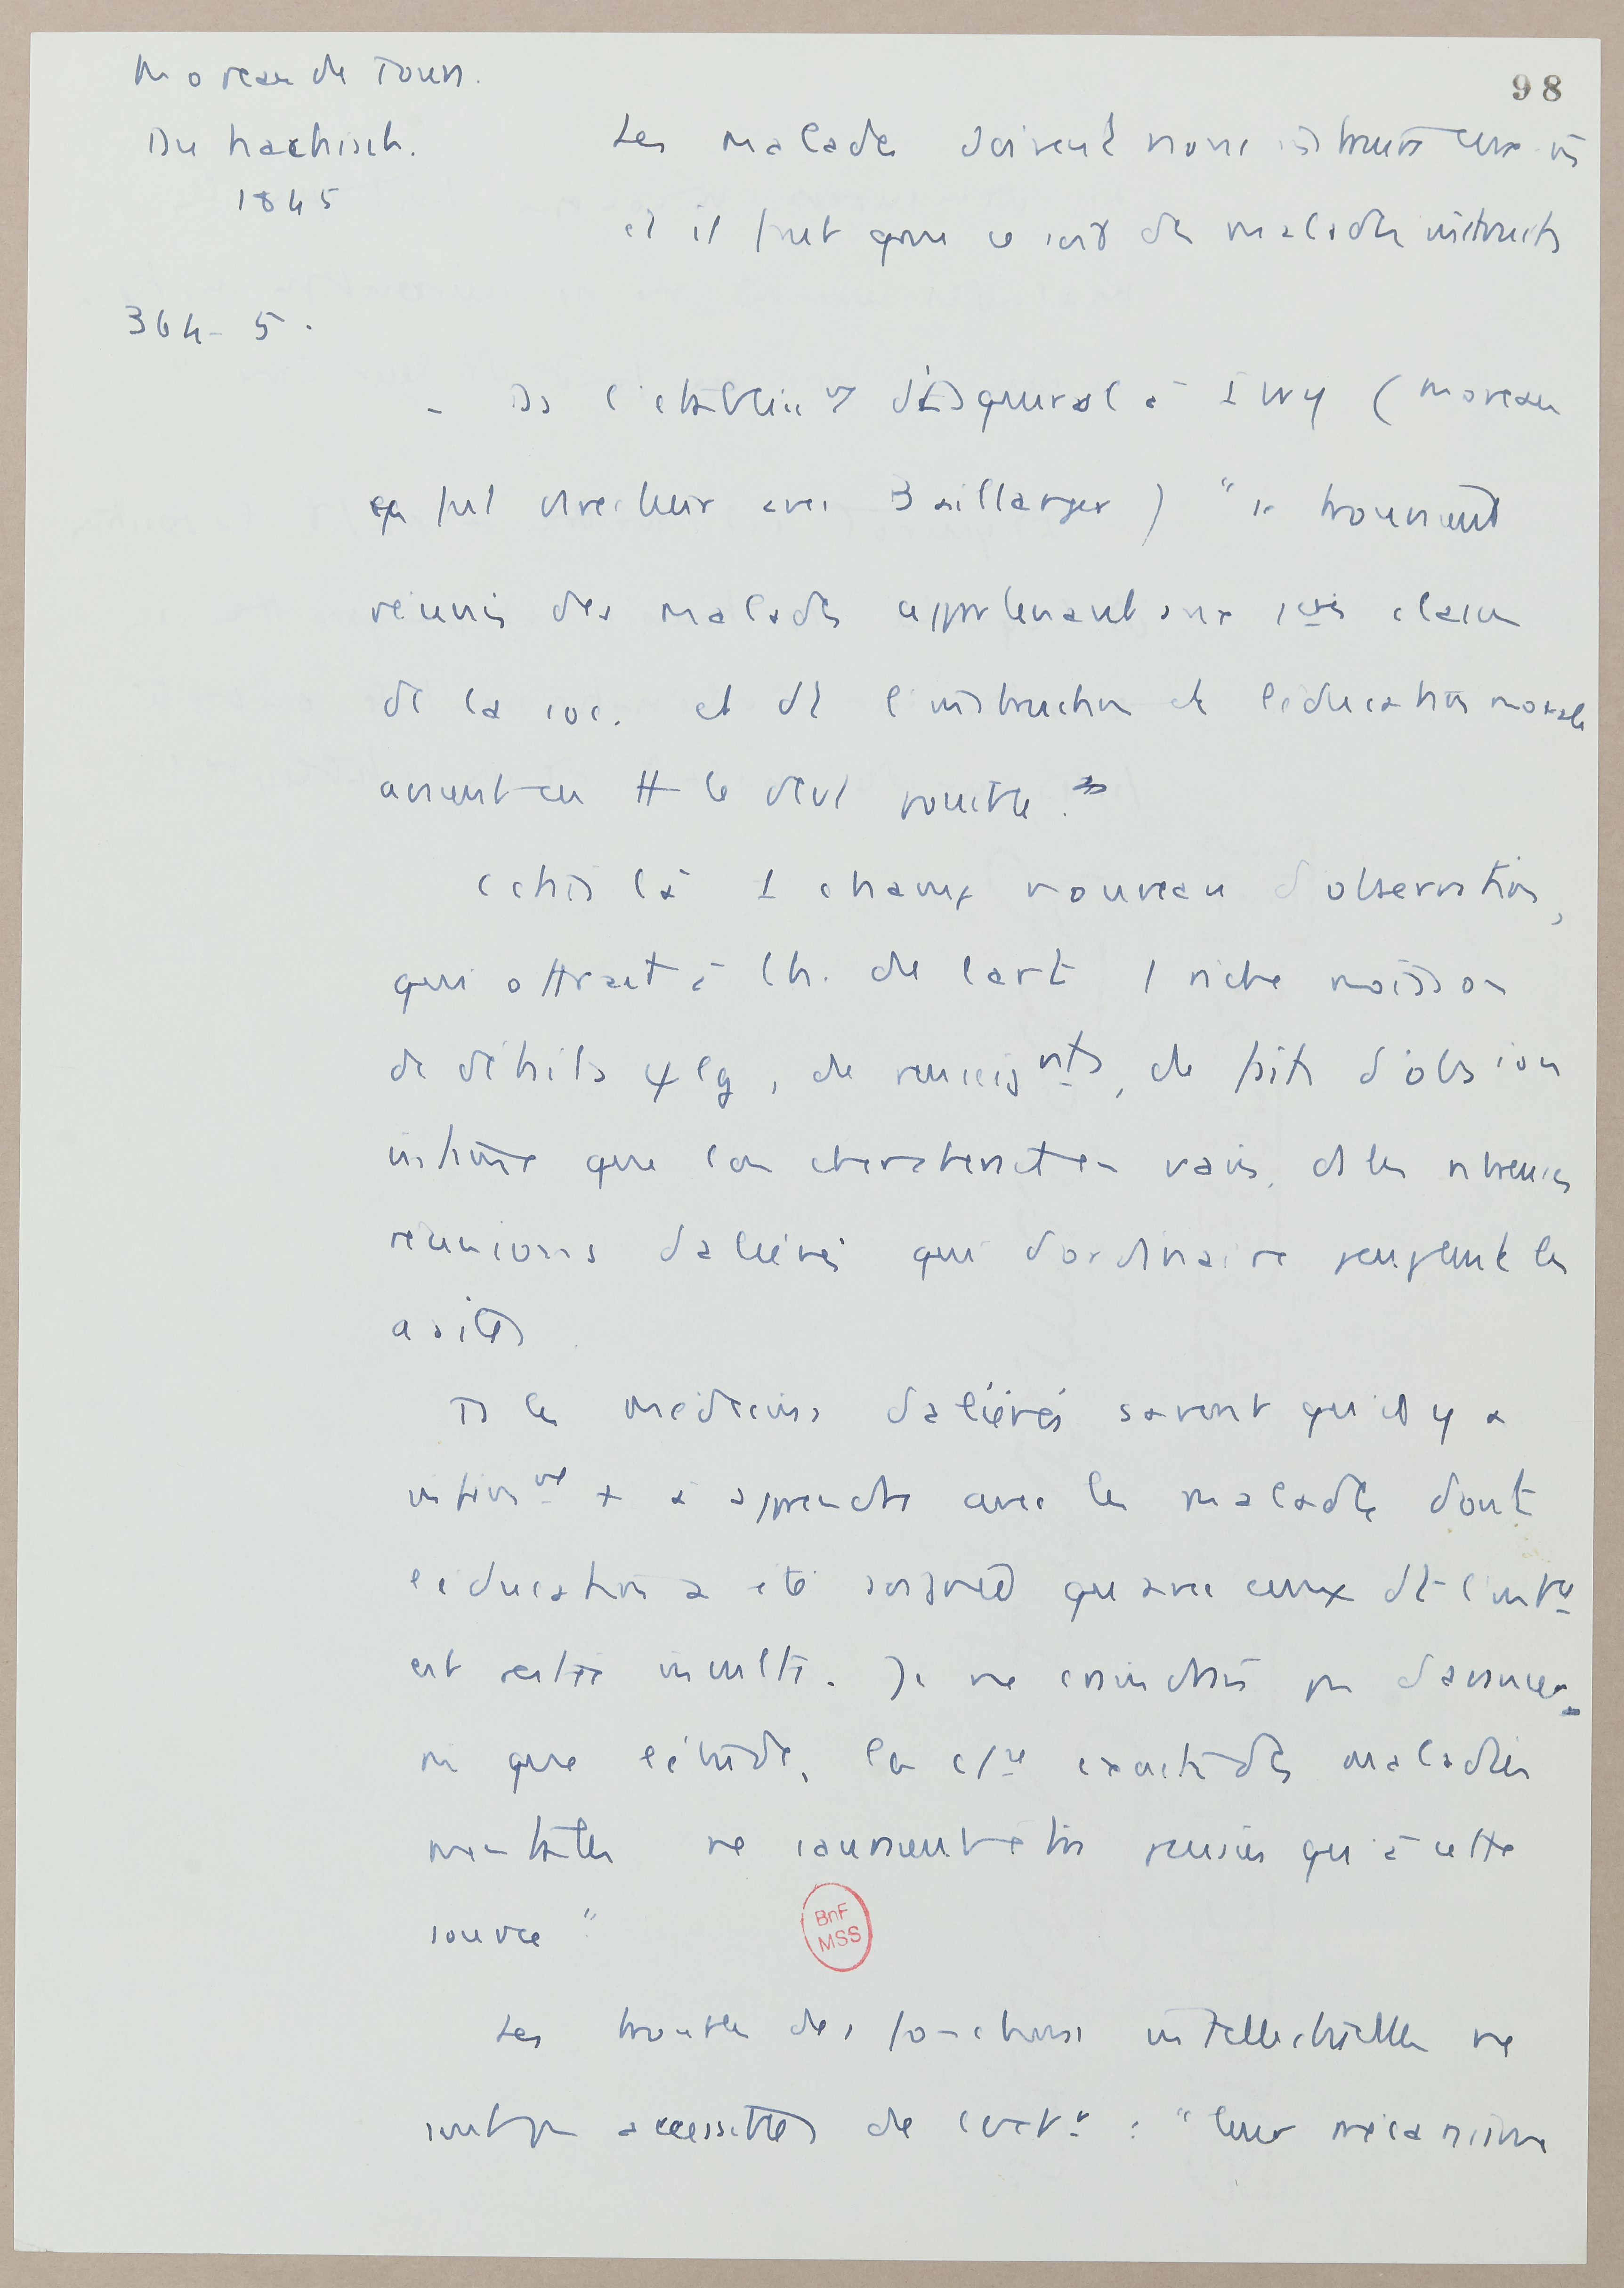 Moreau de Tours.
98
Du hachisch.
Les malades doivent nous instruire
1845
et il faut que ce soit des malades instruits
364-5.
- Ds l'établissnt d'Esquirol à Ivry (Moreau
en fut directeur avec Baillarger) " se trouvaient
réunis des malades appartenant aux 1ères classes
de la soc. et dt l'instruction et l'éducation morale
avaient eu tt le dévt possible."
C'était là 1 champ nouveau d'observation,
qui offrait à l'h. de l'art 1 riche moisson
de détails ψlg, de renseignts, de faits d'obsion
intime que l'on chercherait en vain, ds les nbreuses
réunions d'aliénés qui d'ordinaire peuplent les
asiles
Ts les médecins d'aliénés savent qu'il y a
infinimt + à apprendre avec les malades dont
l'éducation a été soignée qu'avec ceux dt l'intce
est restée inculte. Je ne craindrais pas d'avancer
que l'étude, la csce exacte des maladies
mentales ne sauraient être puisées qu'à cette
source "
BnF
MSS
Les troubles des fonctions intellectuelles ne
sont pas accessibles de l'extr : " leur mécanisme